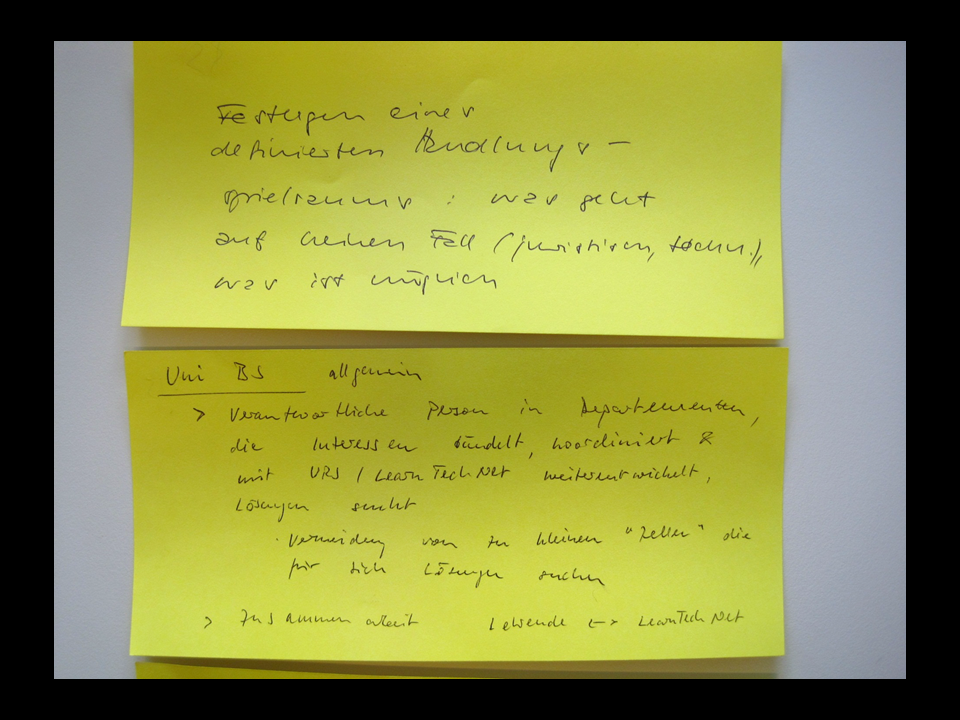 Festlegen eines
definierten Handlungs-
spielraums : was geht
auf keinen Fall (juristisch, techn.),
was ist möglich
Uni BS allgemein
> Verantwortliche Person in Departementen,
die Interessen bündelt, koordiniert &
mit URS / LearnTechNet weiterentwickelt,
Lösungen sucht
· Vermeidung von zu kleinen "Zellen" die
für sich Lösungen suchen
> Zusammenarbeit Lehrende <-> LearnTechNet